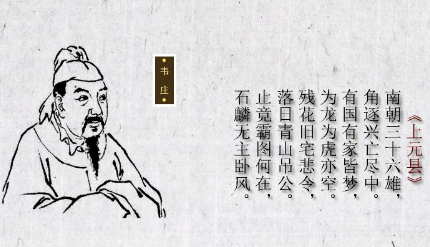 《上元县》
南朝三十六雄，
角逐兴亡尽中。
有国有家皆梦，
为龙为虎亦空。
残花旧宅悲令，
落日青山吊公。
止竟霸图何在，
石麟无主卧风。
韦庄